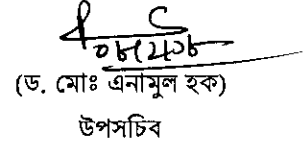 (ড. মোঃ এনামুল হক)
উপসচিব